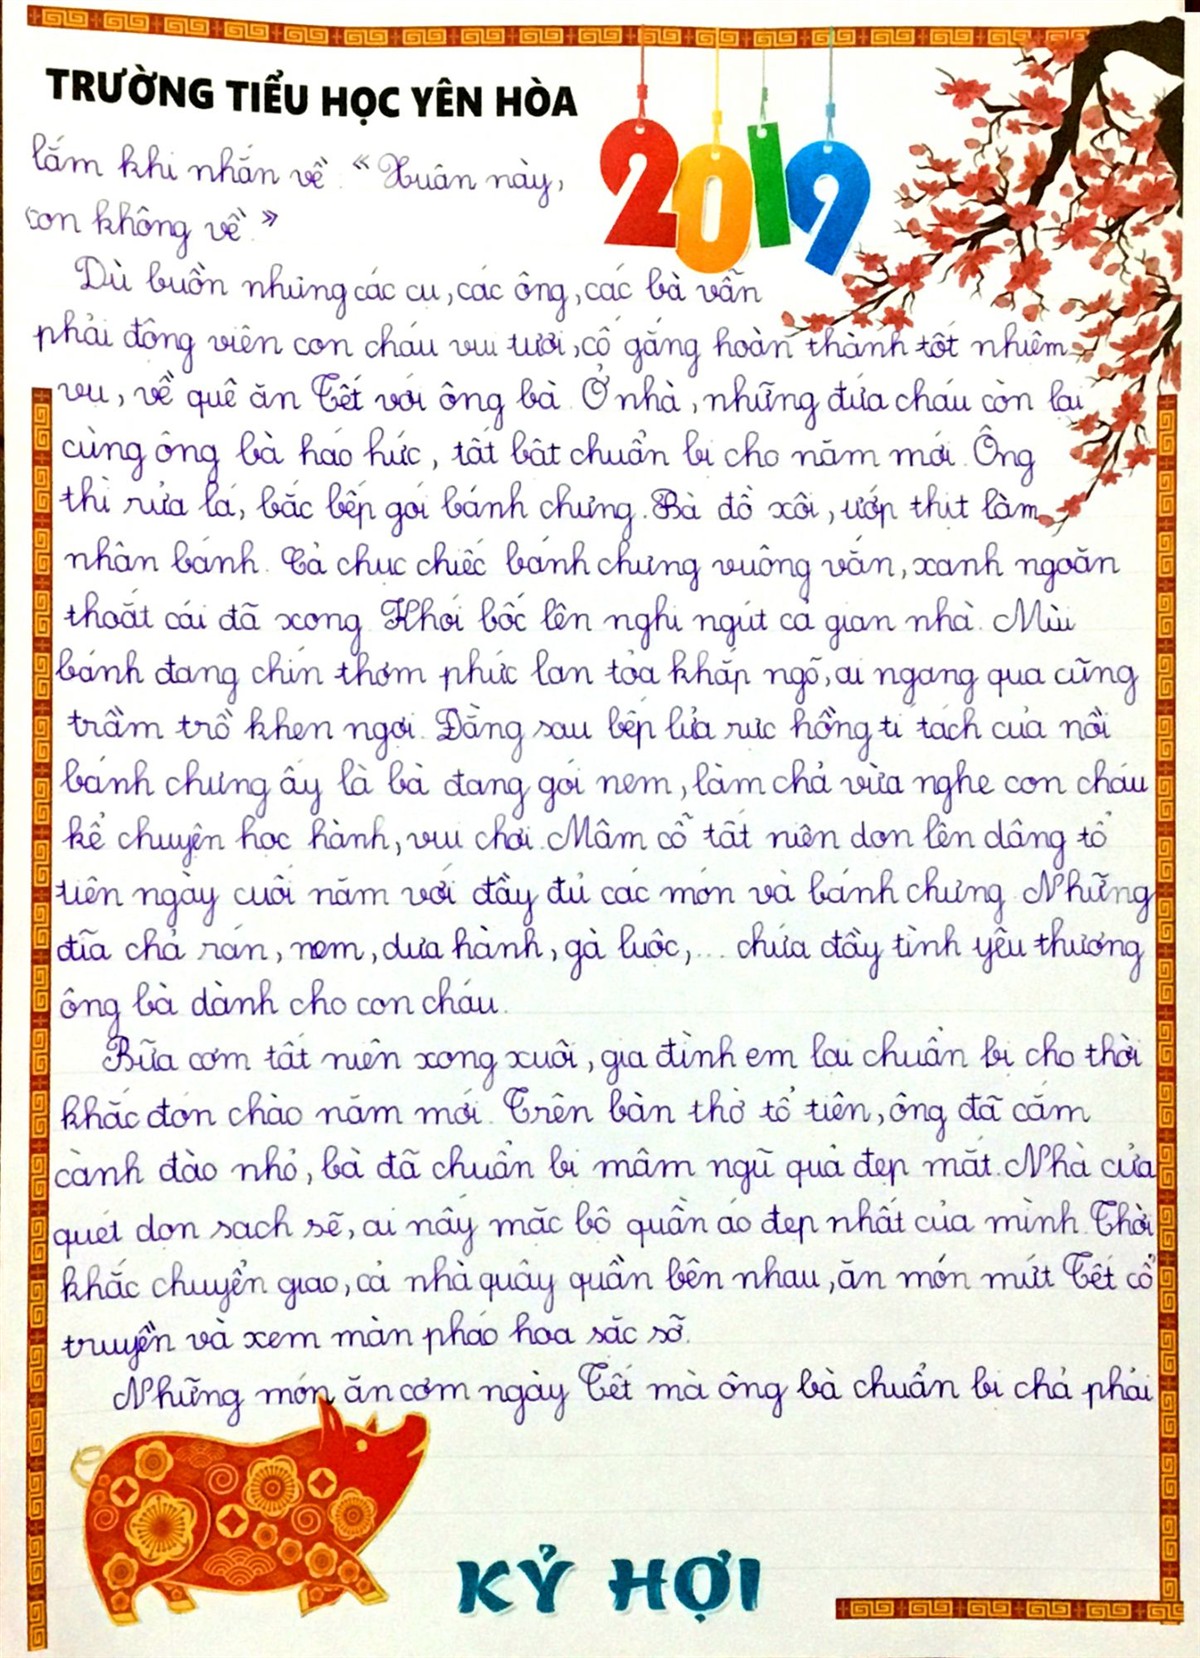 TRƯỜNG TIỂU HỌC YÊN HÒA
2019
lắm khi nhắn về "Xuân này,
con không về."
Dù buồn nhưng các cụ, các ông, các bà vẫn
phải động viên con cháu vui tươi, cố gắng hoàn thành tốt nhiệm
vụ, về quê ăn Tết với ông bà. Ở nhà, những đứa cháu còn lại
cùng ông bà háo hức, tất bật chuẩn bị cho năm mới. Ông
thì rửa lá, bắc bếp gói bánh chưng. Bà đồ xôi, ướp thịt làm
nhân bánh. Cả chục chiếc bánh chưng vuông vắn, xanh ngoăn
thoắt cái đã xong. Khói bốc lên nghi ngút cả gian nhà. Mùi
bánh đang chín thơm phức lan tỏa khắp ngõ, ai ngang qua cũng
trầm trồ khen ngợi. Đằng sau bếp lửa rực hồng tí tách của nồi
bánh chưng ấy là bà đang gói nem, làm chả vừa nghe con cháu
kể chuyện học hành, vui chơi. Mâm cỗ tất niên dọn lên dâng tổ
tiên ngày cuối năm với đầy đủ các món và bánh chưng. Những
đĩa chả rán, nem, dưa hành, gà luộc,... chứa đầy tình yêu thương
ông bà dành cho con cháu.
Bữa cơm tất niên xong xuôi, gia đình em lại chuẩn bị cho thời
khắc đón chào năm mới. Trên bàn thờ tổ tiên, ông đã cắm
cành đào nhỏ, bà đã chuẩn bị mâm ngũ quả đẹp mắt. Nhà cửa
quét dọn sạch sẽ, ai nấy mặc bộ quần áo đẹp nhất của mình. Thời
khắc chuyển giao, cả nhà quây quần bên nhau, ăn món mứt Tết cổ
truyền và xem màn pháo hoa sặc sỡ.
Những món ăn cơm ngày Tết mà ông bà chuẩn bị chả phải
KỶ HỢI